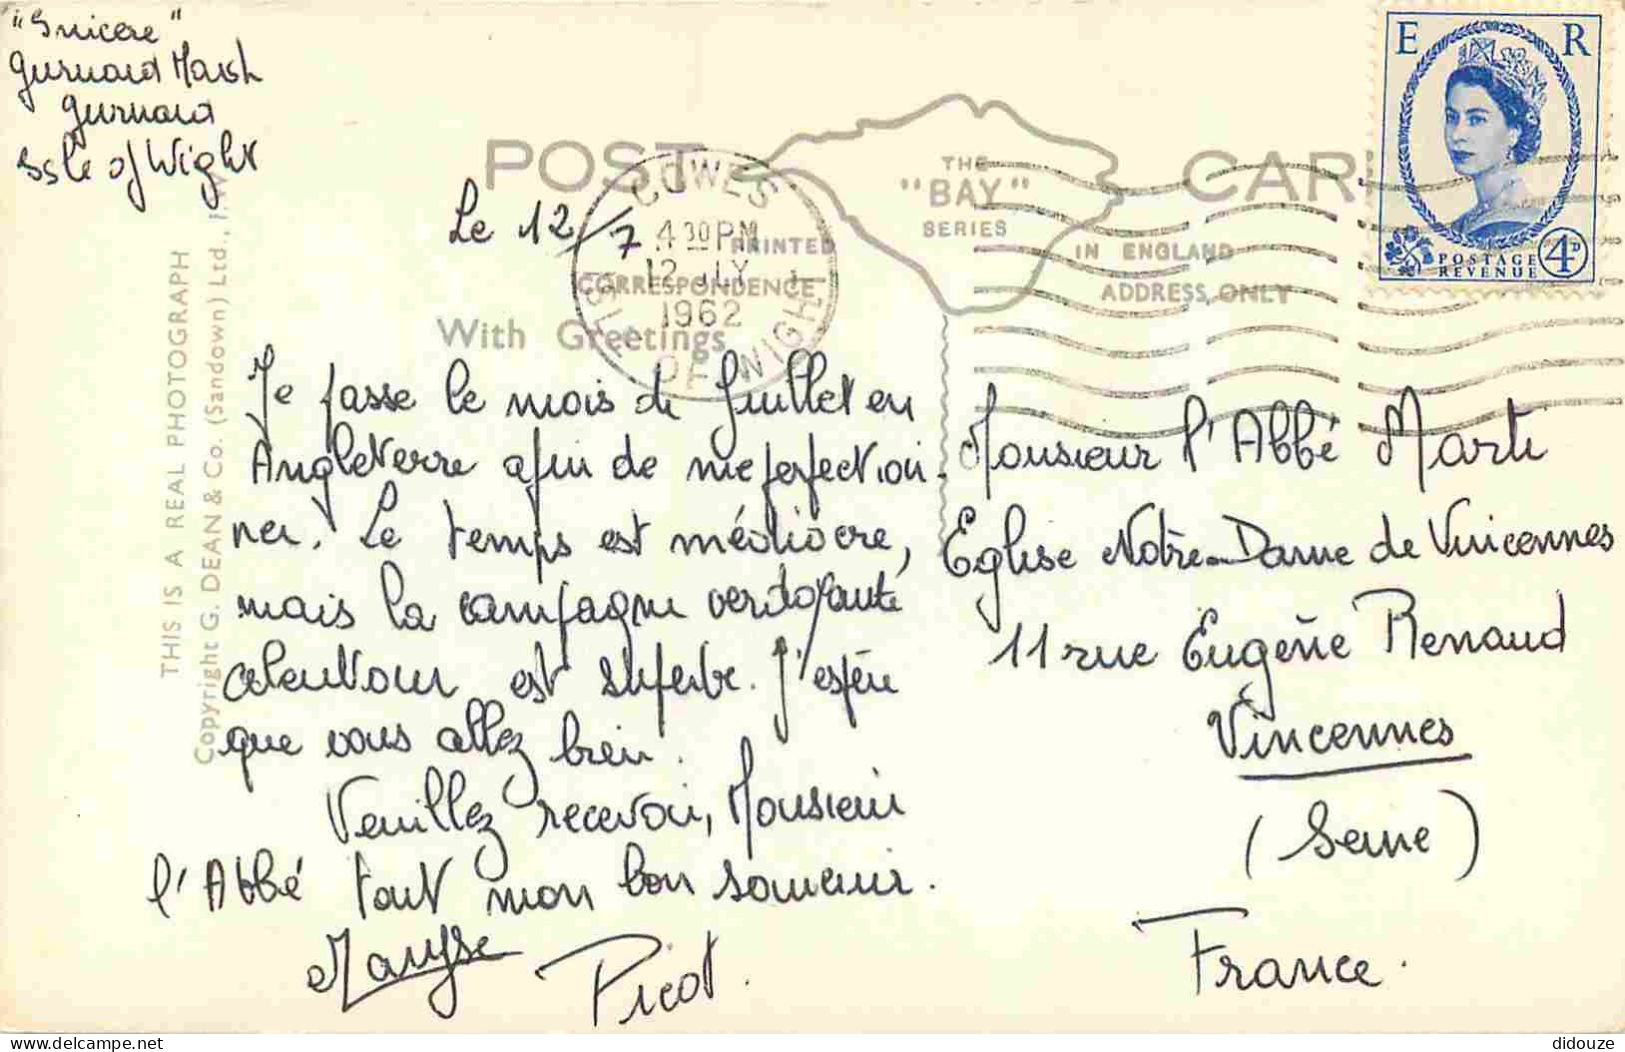 "Snicere"
Gurnard Marsh
Gurnard
Isle of Wight
POST CARD
THE
"BAY"
SERIES
PRINTED
IN ENGLAND
CORRESPONDENCE
ADDRESS ONLY
With Greetings
THIS IS A REAL PHOTOGRAPH
Copyright G. DEAN & Co. (Sandown) Ltd., I.W.
COWES
4 30 PM
12 JLY
1962
ISLE OF WIGHT
E R
POSTAGE
REVENUE
4D
Le 12/7
Je passe le mois de Juillet en
Angleterre afin de me perfection-
ner. Le temps est médiocre,
mais la campagne verdoyante
alentour est superbe. J'espère
que vous allez bien.
Veuillez recevoir, Monsieur
l'Abbé tout mon bon souvenir.
Maryse Picot.
Monsieur l'Abbé Marti
Eglise Notre-Dame de Vincennes
11 rue Eugène Renaud
Vincennes
(Seine)
France.
didouze